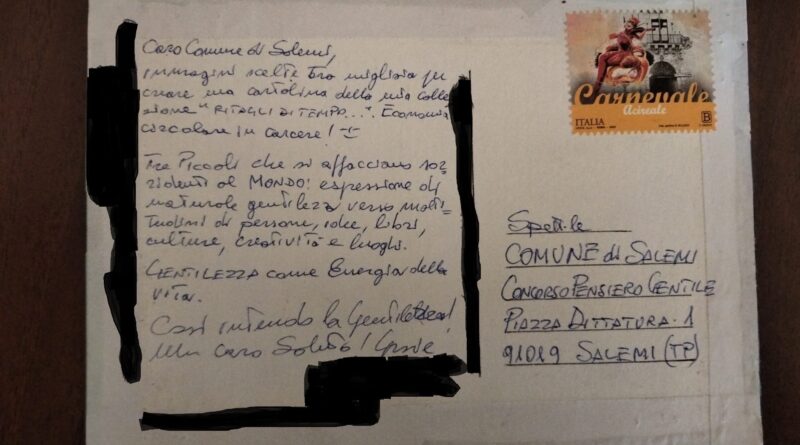 Caro Comune di Salemi,
immagini scelte tra migliaia per
creare una cartolina della mia colle
zione "RITAGLI DI TEMPO...". Economia
circolare in carcere!
Tre Piccoli che si affacciano sor
ridenti al MONDO: espressione di
naturale gentilezza verso molti-
tudini di persone, idee, libri,
culture, creatività e luoghi.
GENTILEZZA come Energia della
vita.
Così intendo la Gentilezza!
Un caro Saluto! Grazie
Carnevale
Acireale
ITALIA
B
Spett.le
COMUNE di SALEMI
CONCORSO PENSIERO GENTILE
PIAZZA DITTATURA 1
91019 SALEMI (TP)